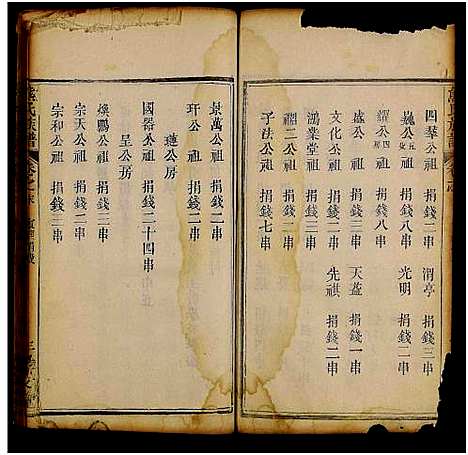 四羣公祖 捐錢二串 渭亭 捐錢三串
巍公 捐錢八串 光明 捐錢二串
公祖 捐錢八串
盛公 捐錢三串 天益 捐錢一串
鴻業堂 捐錢三串 先祺 捐錢二串
福二公祖 捐錢二串
子法公祖 捐錢七串
景萬公祖 捐錢二串
玕公祖 捐錢二串
璉公房
國器公祖 捐錢二十四串
呈公房
煥鵬公祖 捐錢二串
宗天公祖 捐錢二串
宗和公祖 捐錢三串
氏族譜